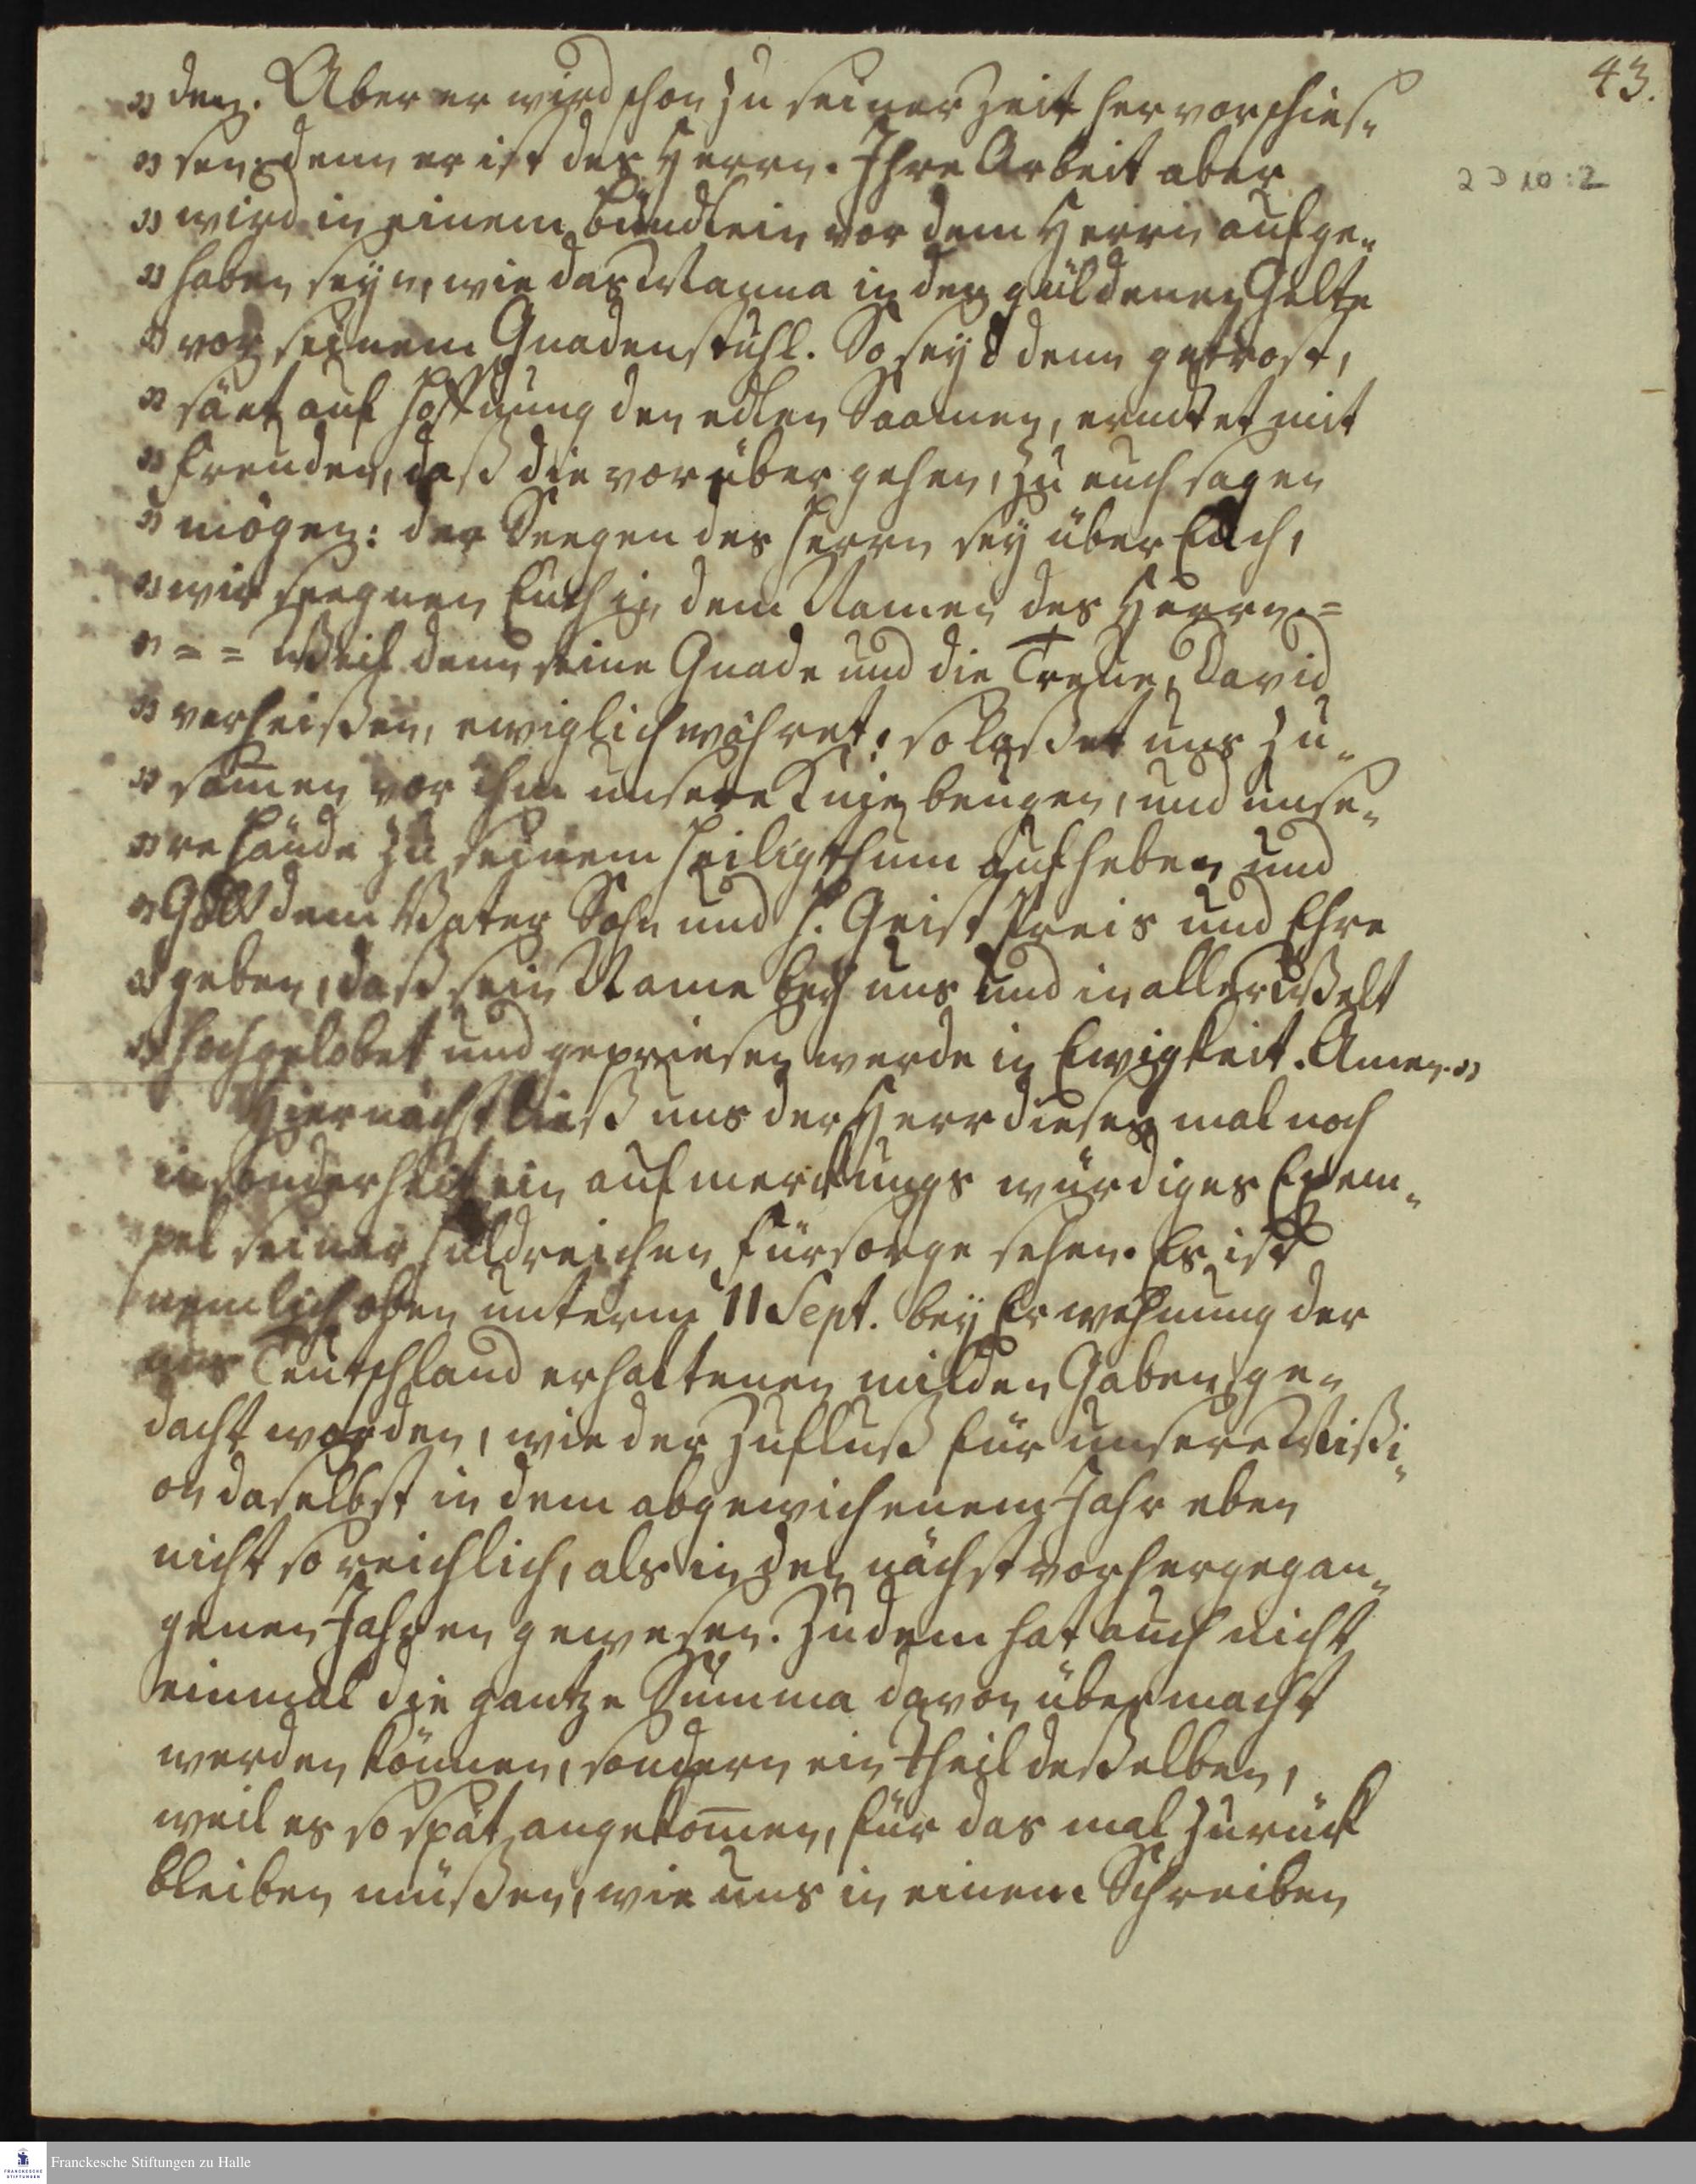 43.
2 D 10:2
" den. Aber er wird schon zu seiner Zeit hervorschies„
" sen: denn er ist des Herrn. Ihre Arbeit aber
" wird in einem Bündlein vor dem Herrn aufge„
" haben seyn, wie das Manna in den güldenen Gelte
" vor seinem Gnadenstuhl. So seyd denn getrost,
" säet auf Hoffnung den edlen Saamen, erndtet mit
" Freuden, daß die vorüber gehen, zu euch sagen
" mögen: der Seegen des Herrn sey über Euch,
" wir seegnen Euch in dem Namen des Herrn. =
" = = Weil denn seine Gnade und die Treue, David
" verheißen, ewiglich währet: so laßet uns zu„
" sam̅en vor ihm unsere Knie beugen, und unse„
" re Hände zu seinem Heiligthum aufheben und
" Gott dem Vater Sohn und H. Geist Preis und Ehre
" geben, daß sein Name bey uns und in aller Welt
" hochgelobet und gepriesen werde in Ewigkeit. Amen."
Hiernächst ließ uns der Herr dieses mal noch
insonderheit ein aufmerckungs würdiges Exem„
pel seiner huldreichen Fürsorge sehen. Es ist
nemlich oben unterm 11 Sept. bey Erwehnung der
aus Teutschland erhaltenen milden Gaben ge„
dacht worden, wie der Zufluß für unsere Mißi„
on daselbst in dem abgewichenem Jahr eben
nicht so reichlich, als in den nächst vorhergegan„
genen Jahren gewesen. Zudem hat auch nicht
einmal die gantze Summa davon übermacht
werden können, sondern ein Theil deßelben,
weil es so spät angekom̅en, für das mal zurück
bleiben müßen, wie uns in einem Schreiben
Franckesche Stiftungen zu Halle